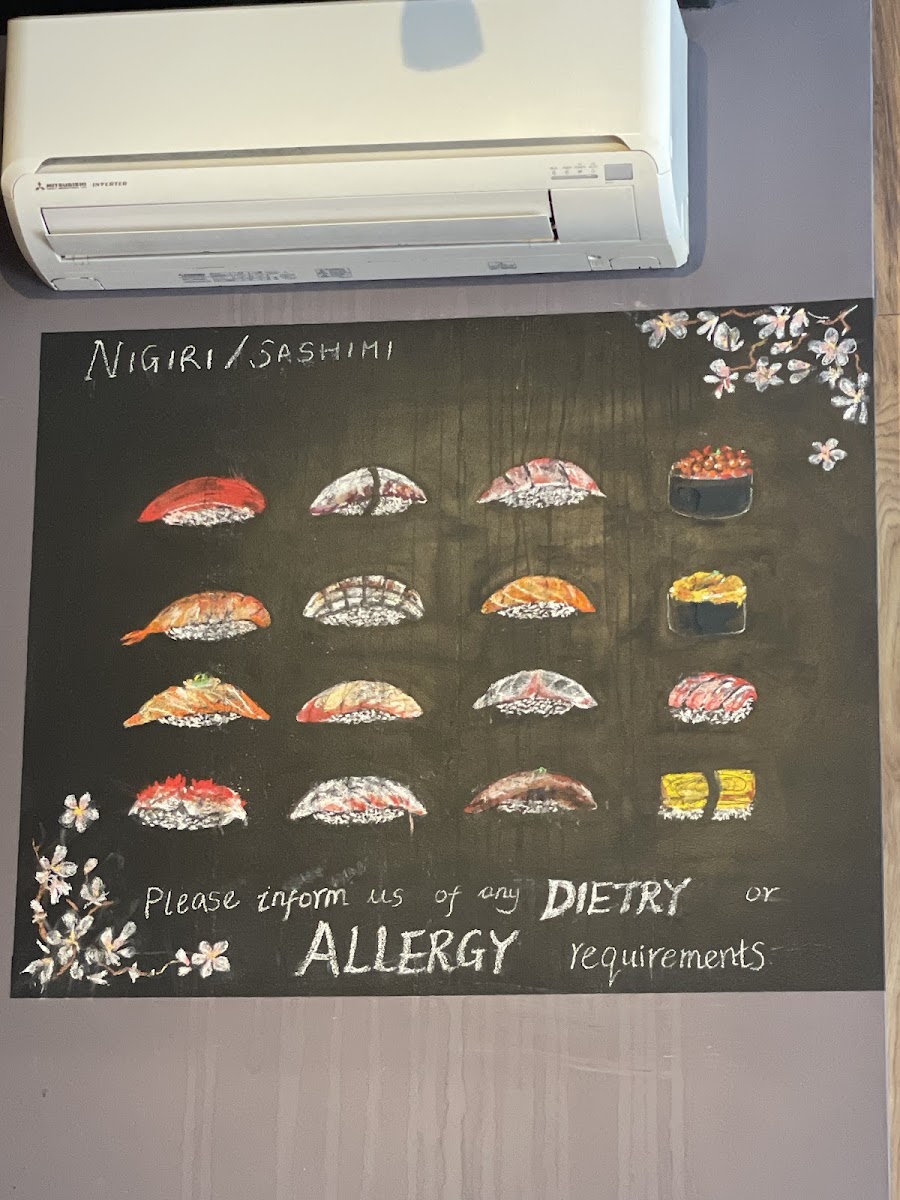 MITSUBISHI INVERTER
NIGIRI / SASHIMI
Please inform us of any DIETRY or
ALLERGY requirements